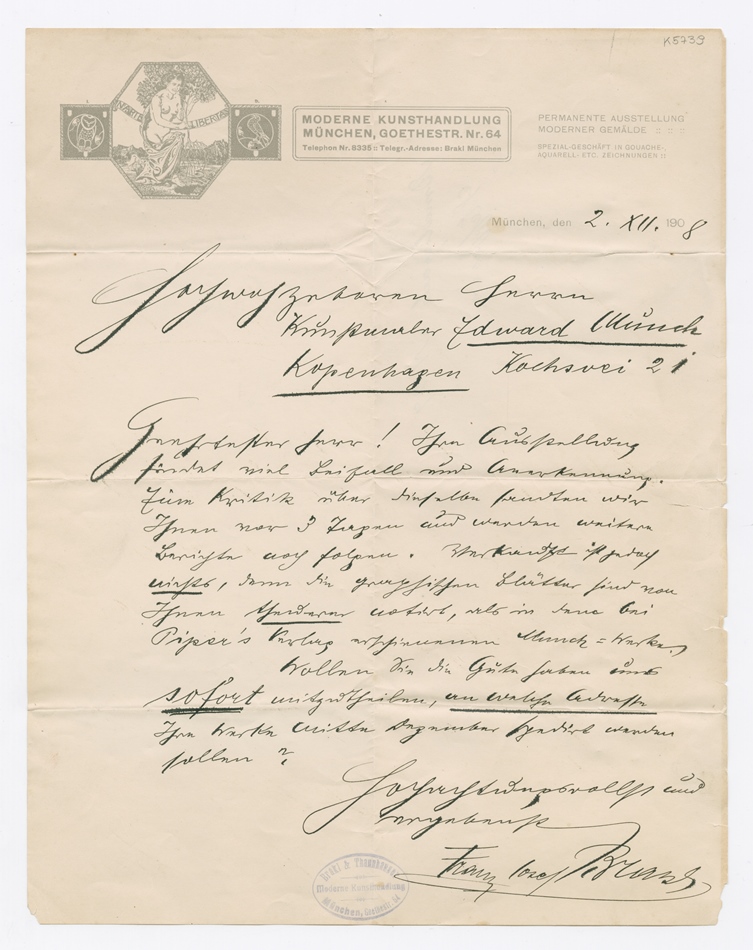 K5739
VARIE
LIBERTAS
MODERNE KUNSTHANDLUNG
MÜNCHEN, GOETHESTR. Nr. 64
Telephon Nr. 8335 :: Telegr.-Adresse: Brakl München
PERMANENTE AUSSTELLUNG
MODERNER GEMÄLDE :: :: ::
SPEZIAL-GESCHÄFT IN GOUACHE-,
AQUARELL- ETC. ZEICHNUNGEN ::
München, den 2. XII. 1908
Hochwohlgeboren Herrn
Kunstmaler Edward Munch
Kopenhagen Kochsvei 21
Geehrtester Herr! Ihre Ausstellung
findet viel Beifall und Anerkennung.
Kritik über dieselbe sandten wir
Ihnen vor 3 Tagen und werden weitere
Berichte noch folgen. Verkauft ist jedoch
nichts, denn die graphischen Blätter sind von
Ihnen theuerer notirt, als in dem bei
Piper's Verlag erschienenen Munch=Werke.
Wollen Sie die Güte haben uns
sofort mitzutheilen, an welche Adresse
Ihre Werke mitte Dezember spedirt werden
sollen?
Hochachtungsvollst und
ergebenst
Franz Josef Brakl
Brakl & Thannhauser
Moderne Kunsthandlung
München, Goethestr. 64